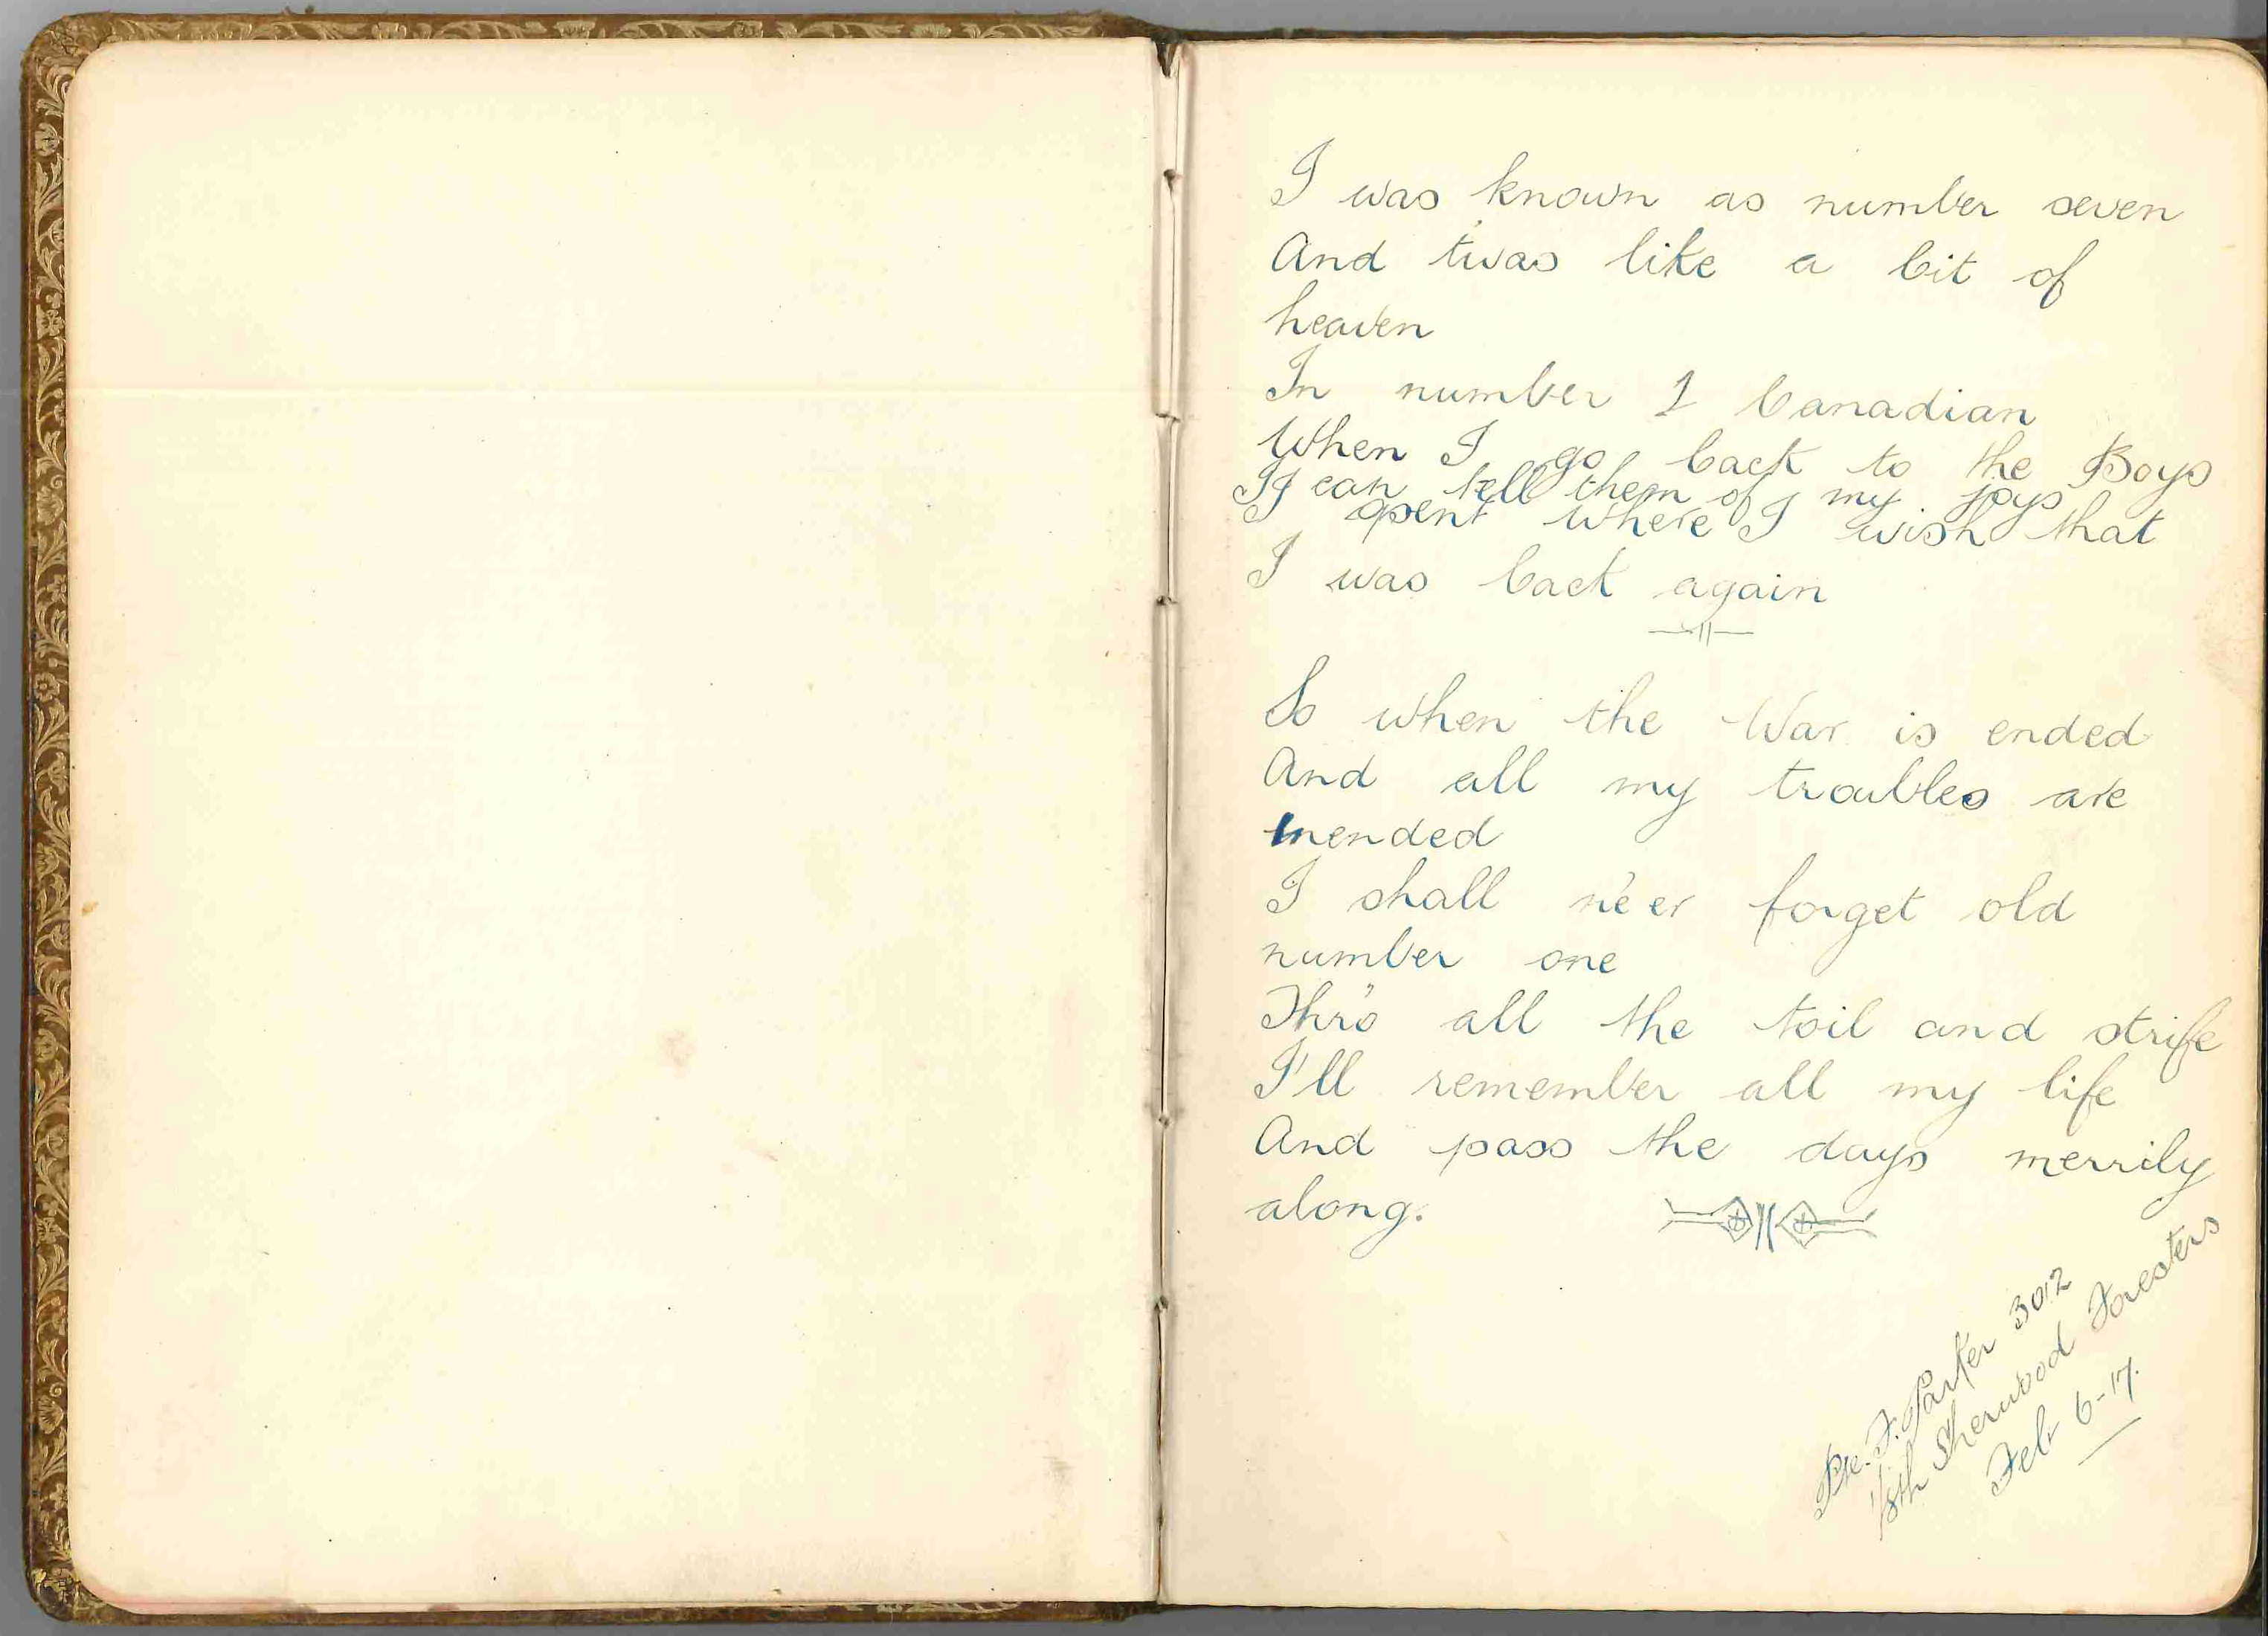 I was known as number seven
And t'was like a bit of
heaven
In number 1 Canadian
When I go back to the Boys
I can tell them of my joys
I spent where I wish that
I was back again
So when the War is ended
And all my troubles are
mended
I shall ne'er forget old
number one
Thro' all the toil and strife
I'll remember all my life
And pass the days merrily
along.
Pte. F. Parker 3012
1/8th Sherwood Foresters
Feb 6-17.